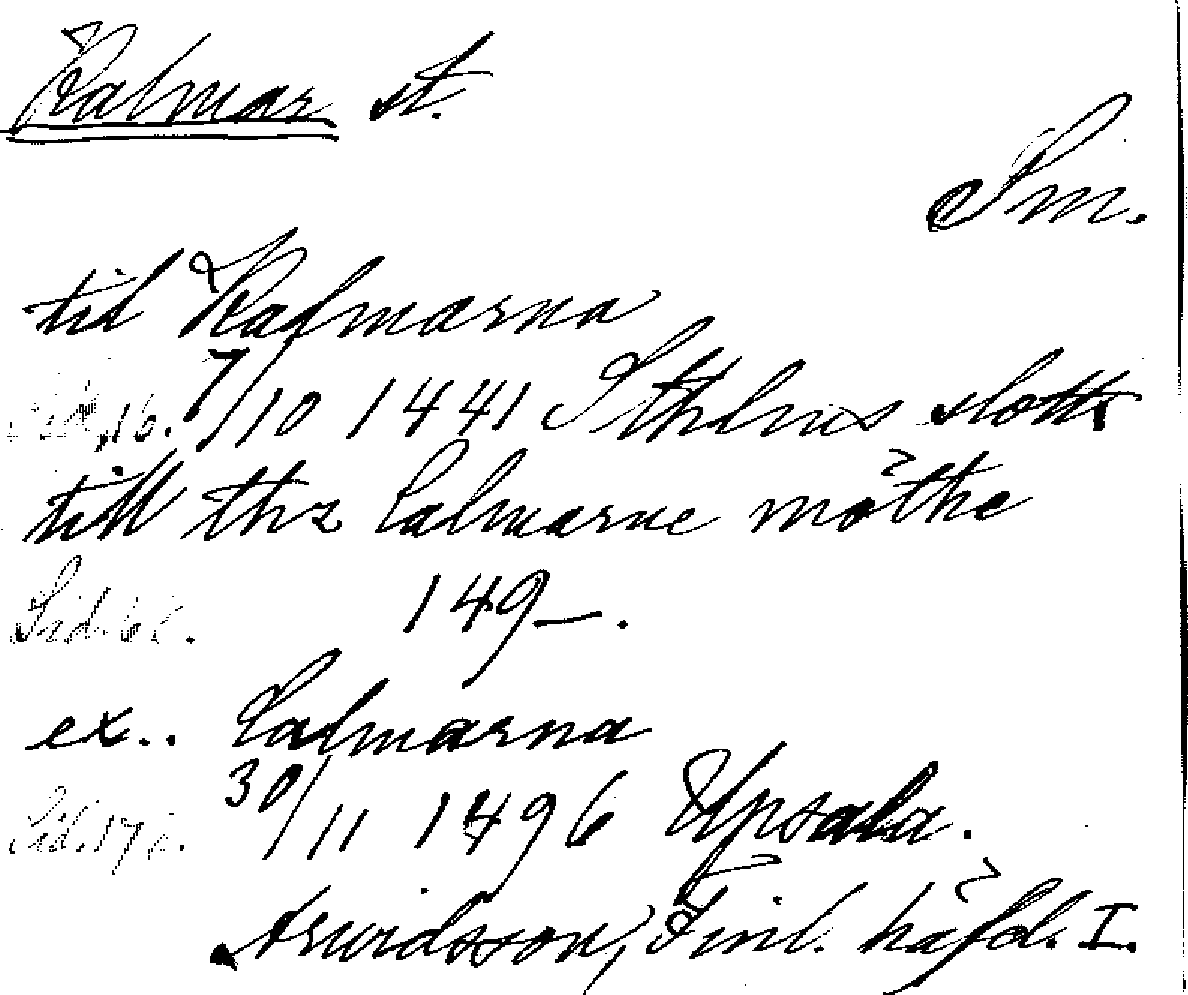 Kalmar st.
Sm.
til Kalmarna
16. 7/10 1441 Sthlms slott
till thz Calmarne möthe
Sid. 149—.
ex.. Calmarna
Sid. 30/11 1496 Upsala.
Arwidsson, Finl. häfd. I.